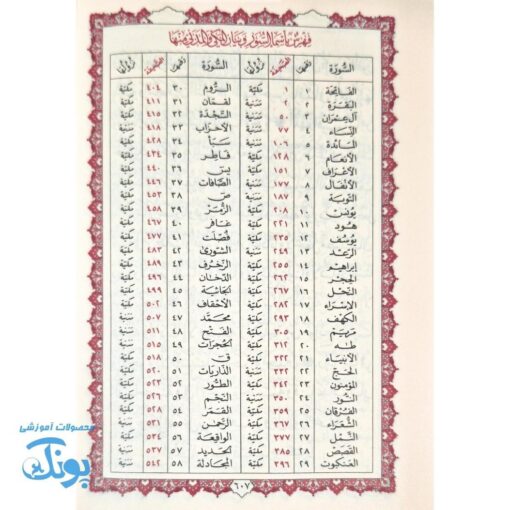 فهرس بأسماء السور وبيان المكي والمدني منها
السورة رقمها الصفحة نزولها السورة رقمها الصفحة نزولها
الفاتحة ١ ١ مكية الروم ٣٠ ٤٠٤ مكية
البقرة ٢ ٢ مدنية لقمان ٣١ ٤١١ مكية
آل عمران ٣ ٥٠ مدنية السجدة ٣٢ ٤١٥ مكية
النساء ٤ ٧٧ مدنية الأحزاب ٣٣ ٤١٨ مدنية
المائدة ٥ ١٠٦ مدنية سبأ ٣٤ ٤٢٨ مكية
الأنعام ٦ ١٢٨ مكية فاطر ٣٥ ٤٣٤ مكية
الأعراف ٧ ١٥١ مكية يس ٣٦ ٤٤٠ مكية
الأنفال ٨ ١٧٧ مدنية الصافات ٣٧ ٤٤٦ مكية
التوبة ٩ ١٨٧ مدنية ص ٣٨ ٤٥٣ مكية
يونس ١٠ ٢٠٨ مكية الزمر ٣٩ ٤٥٨ مكية
هود ١١ ٢٢١ مكية غافر ٤٠ ٤٦٧ مكية
يوسف ١٢ ٢٣٥ مكية فصلت ٤١ ٤٧٧ مكية
الرعد ١٣ ٢٤٩ مدنية الشورى ٤٢ ٤٨٣ مكية
إبراهيم ١٤ ٢٥٥ مكية الزخرف ٤٣ ٤٨٩ مكية
الحجر ١٥ ٢٦٢ مكية الدخان ٤٤ ٤٩٦ مكية
النحل ١٦ ٢٦٧ مكية الجاثية ٤٥ ٤٩٩ مكية
الإسراء ١٧ ٢٨٢ مكية الأحقاف ٤٦ ٥٠٢ مكية
الكهف ١٨ ٢٩٣ مكية محمد ٤٧ ٥٠٧ مدنية
مريم ١٩ ٣٠٥ مكية الفتح ٤٨ ٥١١ مدنية
طه ٢٠ ٣١٢ مكية الحجرات ٤٩ ٥١٥ مدنية
الأنبياء ٢١ ٣٢٢ مكية ق ٥٠ ٥١٨ مكية
الحج ٢٢ ٣٣٢ مدنية الذاريات ٥١ ٥٢٠ مكية
المؤمنون ٢٣ ٣٤٢ مكية الطور ٥٢ ٥٢٣ مكية
النور ٢٤ ٣٥٠ مدنية النجم ٥٣ ٥٢٦ مكية
الفرقان ٢٥ ٣٥٩ مكية القمر ٥٤ ٥٢٨ مكية
الشعراء ٢٦ ٣٦٧ مكية الرحمن ٥٥ ٥٣١ مدنية
النمل ٢٧ ٣٧٧ مكية الواقعة ٥٦ ٥٣٤ مكية
القصص ٢٨ ٣٨٥ مكية الحديد ٥٧ ٥٣٧ مدنية
العنكبوت ٢٩ ٣٩٦ مكية المجادلة ٥٨ ٥٤٢ مدنية
٦٠٧
محصولات آموزشی
پونک